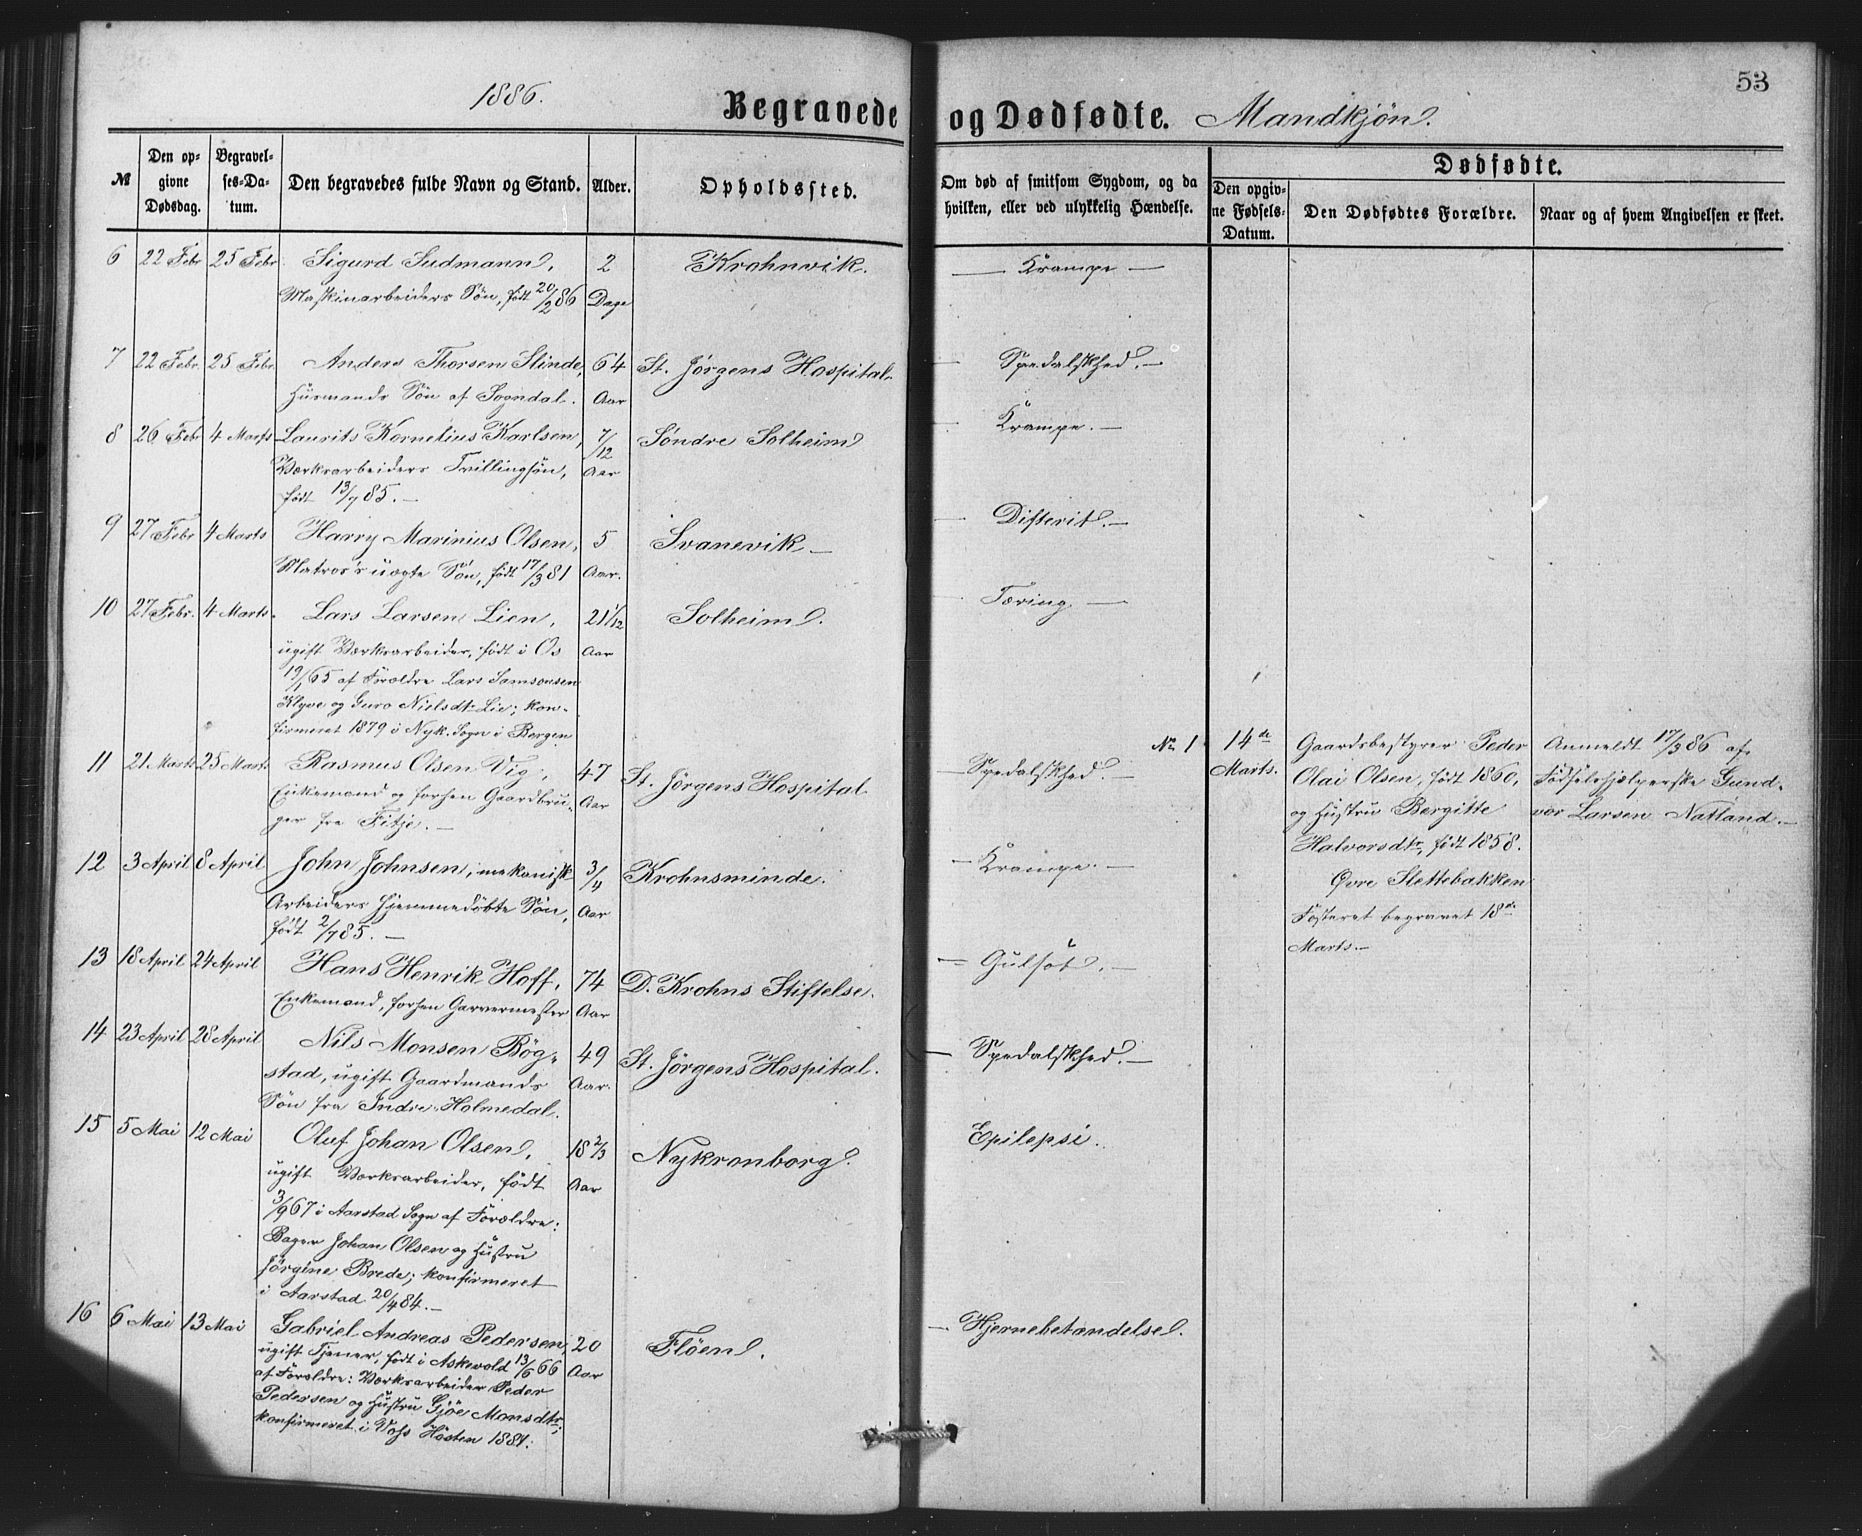 53
1886.
Begravede og Dødfødte. Mandkjøn.
№
Den opgivne Dødsdag.
Begravelses-Datum.
Den begravedes fulde Navn og Stand.
Alder.
Opholdssted.
Om død af smitsom Sygdom, og da hvilken, eller ved ulykkelig Hændelse.
Dødfødte.
Den opgivne Fødsels-Datum.
Den Dødfødtes Forældre.
Naar og af hvem Angivelsen er skeet.
6 22 Febr 25 Febr. Sigurd Sudmann, 2 Krohnvik. — Krampe —
Maskinarbeiders Søn, født 20/2 86 Dage
7 22 Febr. 25 Febr. Anders Thorsen Slinde, 64 St. Jørgens Hospital. — Spedalskhed. —
Husmands Søn af Sogndal. Aar
8 26 Febr 4 Marts Laurits Kornelius Karlsen, 7/12 Søndre Solheim — Krampe. —
Værksarbeiders Tvillingsøn, Aar
født 13/7 85. —
9 27 Febr 4 Marts Harry Marinius Olsen, 5 Svanevik — — Difterit. —
Matros's uægte Søn, født 17/3 81 Aar.
10 27 Febr. 4 Marts. Lars Larsen Lien, 21 1/12 Solheim. — Tæring —
ugift Værksarbeider, født i Os Aar
19/1 65 af Forældre Lars Samsonsen
Klyve og Guro Nielsdtr Lie; kon-
firmeret 1879 i Nyk. Sogn i Bergen
11 21 Marts 25 Marts Rasmus Olsen Vig, 47 St. Jørgens Hospital — Spedalskhed. —
Enkemand og forhen Gaardbru- Aar
ger fra Fitje. —
12 3 April 8 April John Johnsen, mekanisk 3/4 Krohnsminde. — Krampe. —
Arbeiders hjemmedøbte Søn, Aar
født 2/7 85. —
13 18 April 24 April Hans Henrik Hoff, 74 D. Krohns Stiftelse. — Gulsot. —
Enkemand, forhen Garvermester Aar
14 23 April 28 April Nils Monsen Bøg- 49 St. Jørgens Hospital. — Spedalskhed. —
stad, ugift Gaardmands Aar.
Søn fra Indre Holmedal.
15 5 Mai 12 Mai Oluf Johan Olsen, 18 2/3 Nykronborg. Epilepsi.
ugift Værksarbeider, født Aar
3/9 67 i Aarstad Sogn af Forældre:
Bager Johan Olsen og Hustru
Jørgine Brede; konfirmeret
i Aarstad 20/4 84. —
16 6 Mai 13 Mai Gabriel Andreas Pedersen, 20 Fløen. — Hjernebetændelse.
ugift Tjener, født i Askevold 13/6 66 Aar
af Forældre: Værksarbeider Peder
Pedersen og Hustru Gjøe Monsdtr;
konfirmeret i Voss Høsten 1881.
No 1 14de Marts.
Gaardsbestyrer Peder
Olai Olsen, født 1860,
og Hustru Bergitte
Halvorsdtr, født 1858.
Øvre Slettebakken
Fosteret begravet 18de
Marts. —
Anmeldt 17/3 86 af
Fødselshjælperske Gund-
vor Larsen Natland. —